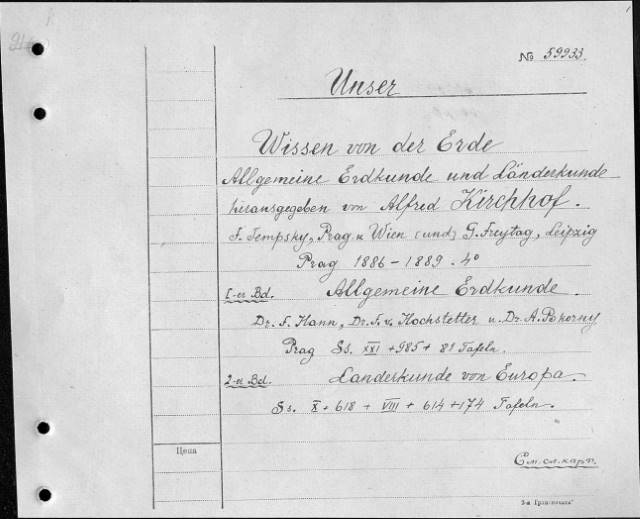 № 59933.
Unser
Wissen von der Erde
Allgemeine Erdkunde und Länderkunde
herausgegeben von Alfred Kirchhof.
F. Tempsky, Prag u Wien (und) G. Freytag, Leipzig
Prag 1886-1889. 4°
I-er Bd. Allgemeine Erdkunde.
Dr. F. Hann, Dr. F. v. Hochstetter u. Dr. A. Pokorny
Prag Ss. XXI + 985 + 81 Tafeln.
2-er Bd. Landerkunde von Europa.
Ss. X + 618 + VIII + 614 + 174 Tafeln.
Цена
См. сл. карт.